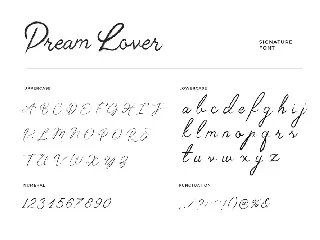 Dream Lover
SIGNATURE
FONT
UPPERCASE
A B C D E F G H I J
K L M N O P Q R S
T U V W X Y Z
LOWERCASE
a b c d e f g h i j
k l m n o p q r s
t u v w x y z
NUMERAL
1 2 3 4 5 6 7 8 9 0
PUNCTUATION
@%&